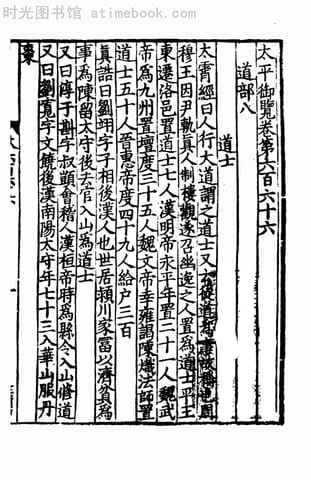 时光图书馆 - atimebook.com
太平御覽卷第六百六十六
道部八
道士
太霄經曰人行大道謂之道士又云從道爲事故稱也周
穆王因尹軌真人制樓觀遂召幽逸之人置爲道士平王
東遷洛邑置道士七人漢明帝永平年置二十一人魏武
帝爲九州置壇度三十五人魏文帝幸雍謁陳熾法師置
道士五十人晉惠帝度四十九人給户三百
真誥曰劉翊字子相後漢人也世居頴川家富以濟貧爲
事爲陳留太守後去官入山爲道士
又曰淳于斟字叔顯會稽人漢桓帝時爲縣令入山修道
又曰劉寬字文饒後漢南陽太守年七十三入華山服丹